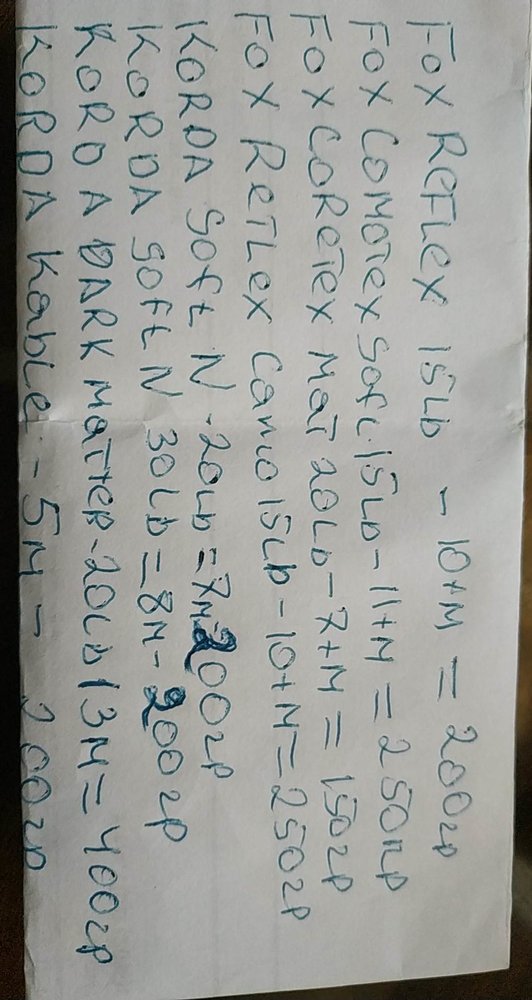 FOX REFLEX 15LD - 10+M = 200гр
FOX COMOTEX SOFt 15LD - 11+M = 250гр
FOX CORETEX MAT 20LD - 7+M = 150гр
FOX RETLEX CAMO 15LD - 10+M = 250гр
KORDA SOFt N - 20LD = 7M - 200гр
KORDA SOFt N 30LD = 8M - 200гр
KORDA DARK MATTER - 20LD 13M = 400гр
KORDA KABLE - 5M - 200гр